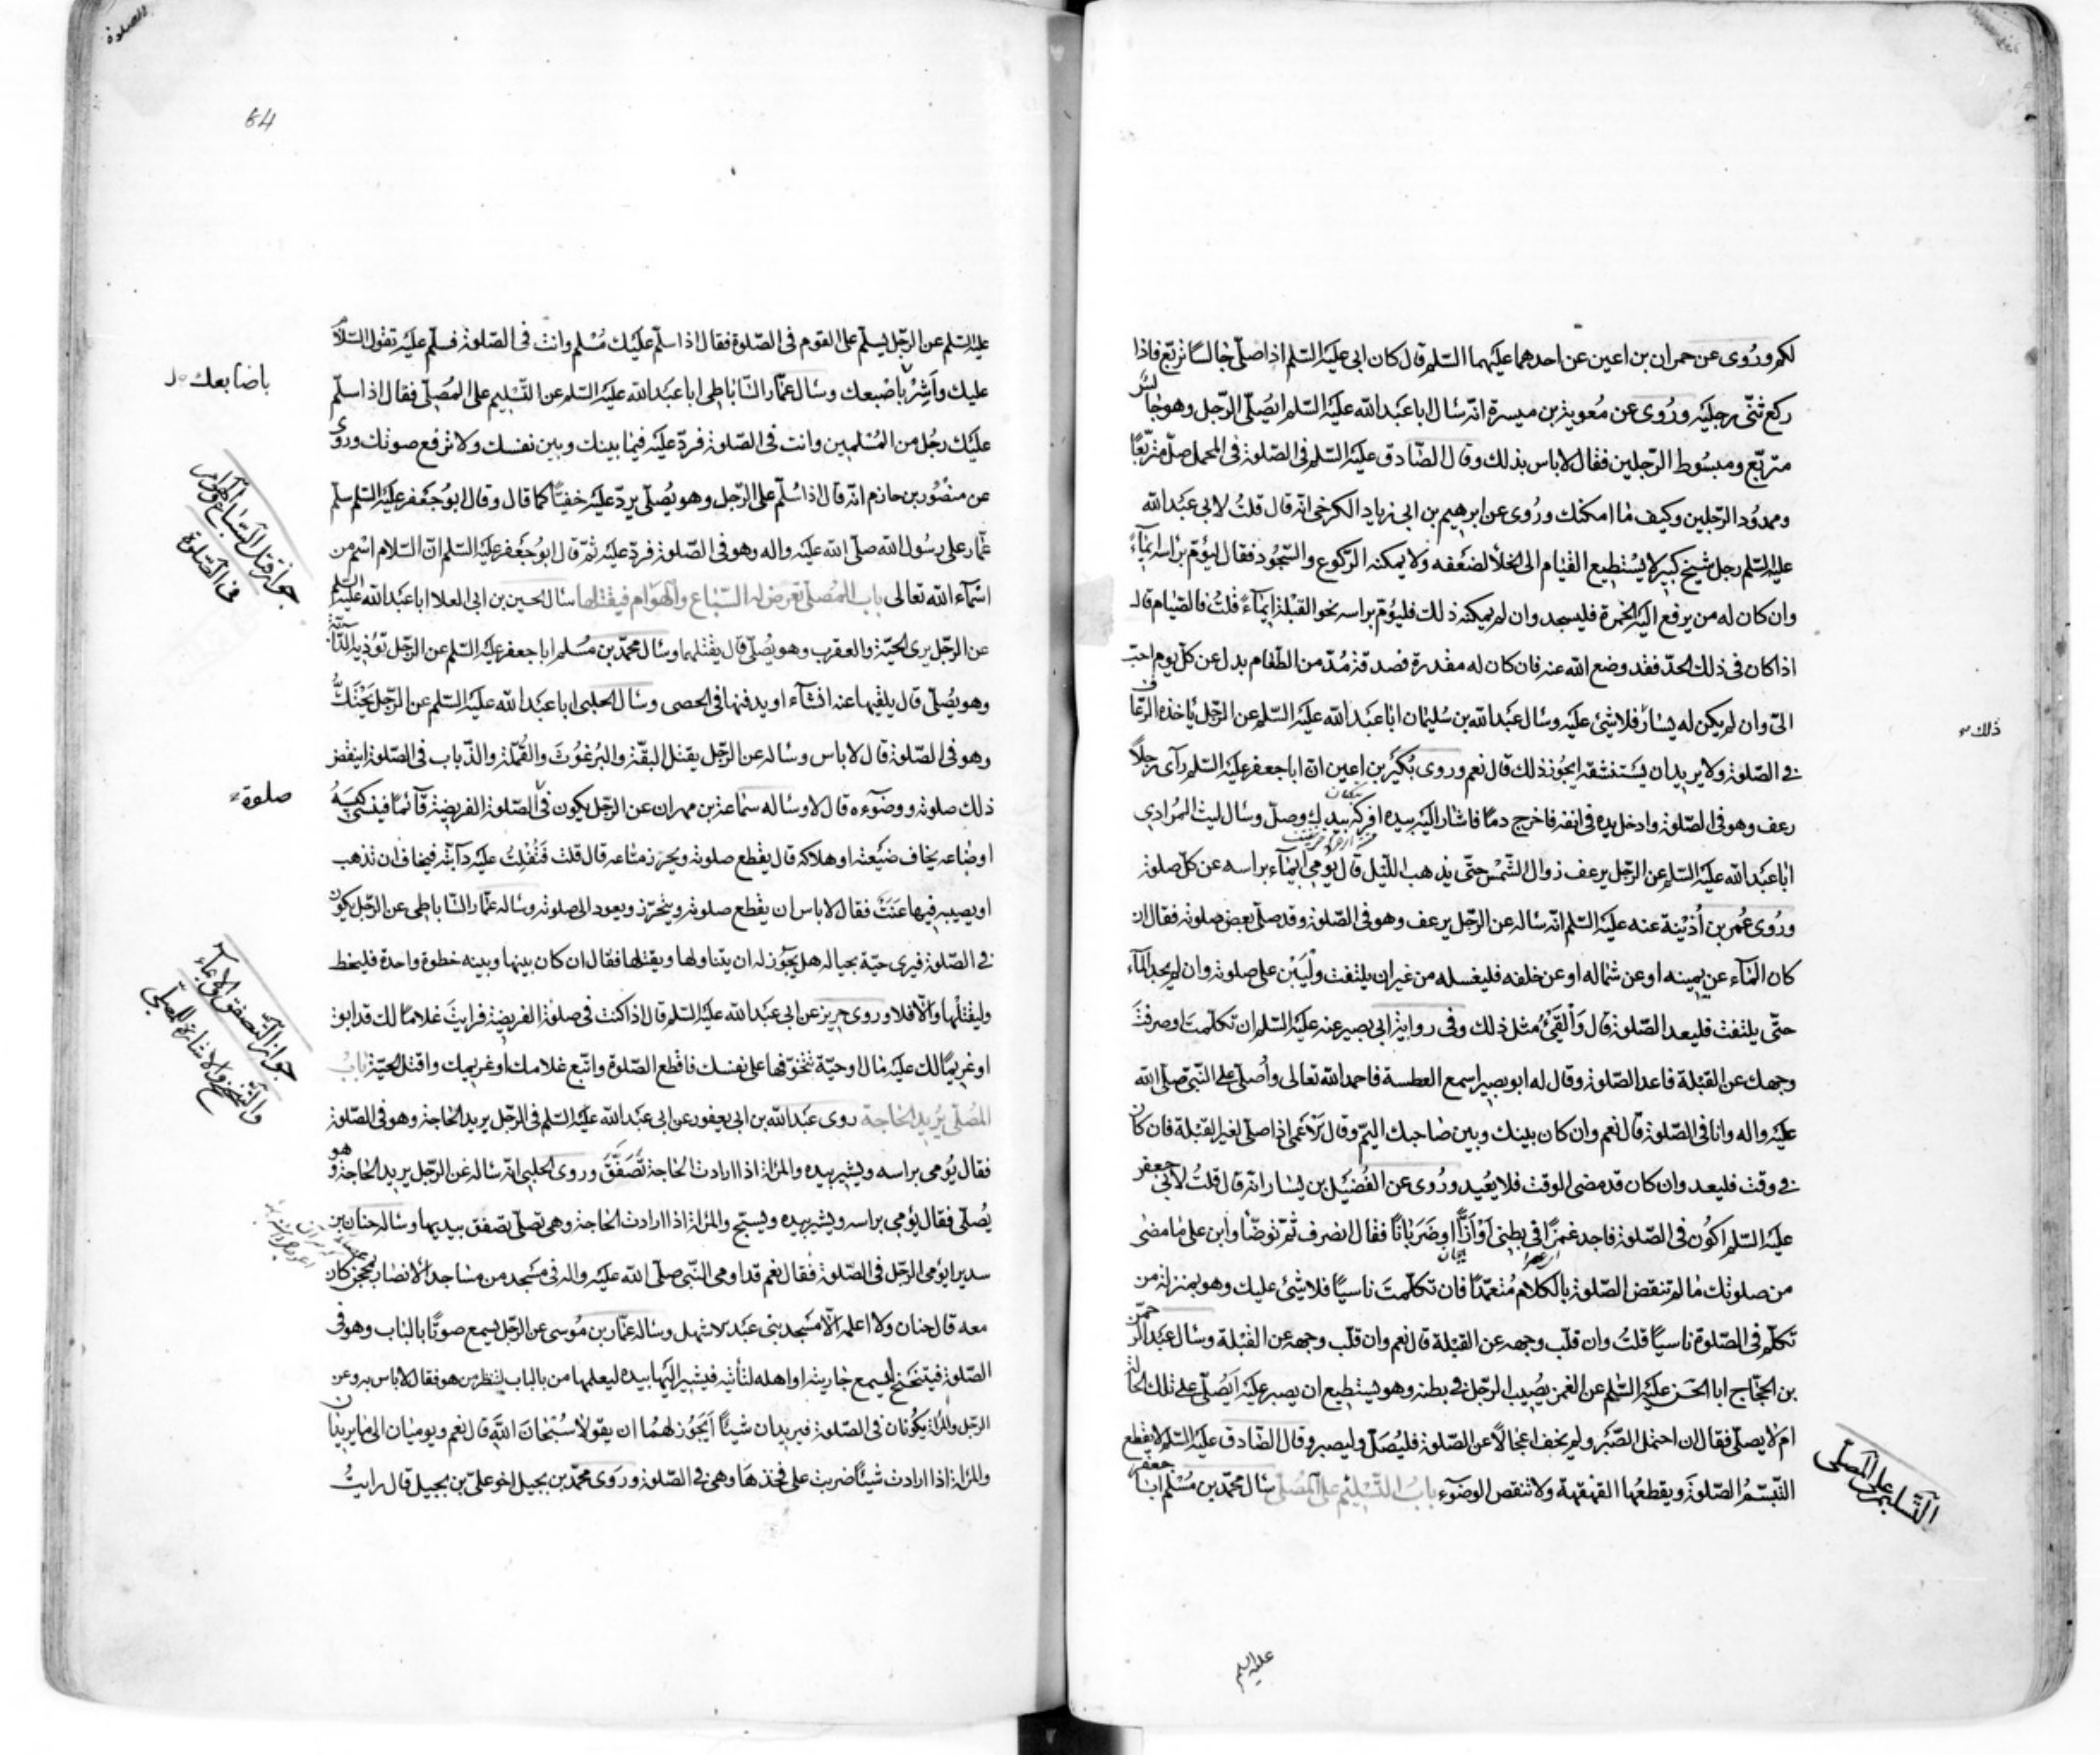 لكم وروى عن حمران بن اعين عن احدهما عليهما السلم قال كان ابى عليه السلم اذا صلّى جالسًا تربّع فاذا
ركع ثنّى رجليه ورُوى عن مُعوية بن ميسرة انّه سال ابا عبد الله عليه السّلم ايُصلّى الرّجل وهو جالس
متربّع ومبسُوط الرّجلين فقال لاباس بذلك وقال الصّادق عليه السّلم فى الصّلوة فى المحمل صلّ متربّعًا
وممدُود الرّجلين وكيف ما امكنك ورُوى عن ابرهيم بن ابى زياد الكرخى انّه قال قلتُ لابى عبد الله
عليه السّلم رجل شيخ كبير لا يُستطيع القيام الى الخلاء لضعفه ولا يمكنه الركوع والسّجُود فقال ليؤم براسه ايمآءً
وان كان له من يرفع اليه الخمرة فليسجد وان لم يمكنه ذلك فليُؤم براسه نحو القبلة ايمآءً قلتُ فالصّيام قال
اذا كان فى ذلك الحدّ فقد وضع الله عنه فان كان له مقدرة فصدقة مُدّ من الطّعام بدل عن كلّ يوم احبّ
الىّ وان لم يكن له يسار فلا شىء عليه وسال عبد الله بن سُليمان ابا عبد الله عليه السّلم عن الرّجل ياخذه الرّعاف
فى الصّلوة ولا يريد ان يستنشقه ايجُوز ذلك قال نعم وروى بُكير بن اعين انّ ابا جعفر عليه السّلم رآى رجلًا
رعف وهو فى الصّلوة وادخل يده فى انفه فاخرج دمًا فاشار اليه بيده افركه بيدك وصلّ وسال ليث المُرادى
ابا عبد الله عليه السّلم عن الرّجل يرعف زوال الشّمس حتّى يذهب اللّيل قال يُومى ايمآء براسه عن كلّ صلوة
ورُوى عُمر بن اُذينة عنه عليه السّلم انّه ساله عن الرّجل يرعف وهو فى الصّلوة وقد صلّى بعض صلوته فقال ان
كان المآء عن يمينه او عن شماله او عن خلفه فليغسله من غير ان يلتفت وليَبن على صلوته وان لم يجد المآء
حتّى يلتفت فليعد الصّلوة قال وَالقَىْءُ مثل ذلك وفى رواية ابى بصير عنه عليه السّلم ان تكلّمت او صرفتَ
وجهك عن القبلة فاعد الصّلوة وقال له ابو بصير اسمع العطسة فاحمد الله تعالى واُصلّى على النّبىّ صلّى الله
عليه واله وانا فى الصّلوة قال نعم وان كان بينك وبين صاحبك اليمّ وقال فى اعمى اذا صلّى لغير القبلة فان كان
فى وقت فليعد وان كان قد مضى الوقت فلا يُعيد ورُوى عن الفُضيل بن يسار انّه قال قلتُ لابى جعفر
عليه السّلم اكُون فى الصّلوة فاجد غمزًا فى بطنى اَوْ اَزًّا او ضَرَبانًا فقال انصرف ثمّ توضّأ وابن على ما مضى
من صلوتك ما لم تنقض الصّلوة بالكلام مُتعمّدًا فان تكلّمتَ ناسيًا فلا شىء عليك وهو بمنزلة من
تكلّم فى الصّلوة ناسيًا قلتُ وان قلّب وجهه عن القبلة قال نعم وان قلّب وجهه عن القبلة وسال عبد الرّحمن
بن الحجّاج ابا الحسن عليه السّلم عن الغمز يصُيب الرّجل فى بطنه وهو يستطيع ان يصبر عليه ايُصلّى على تلك الحالة
ام لا يصلّى فقال ان احتمل الصّبر ولم يخف اعجالًا عن الصّلوة فليُصلّ وليصبر وقال الصّادق عليه السّلم لا يقطع
التّبسّمُ الصّلوةَ ويقطعُها القهقهة ولا تنقض الوضوء بابُ التّسليم على المُصلّى سال محمّد بن مُسلم ابا جعفر
ذلك
التّسليم على المصلّى
عليه السلم
64
الصلوة
عليه السّلم عن الرّجل يسلّم على القوم فى الصّلوة فقال اذا سلّم عليك مُسلم وانت فى الصّلوة فسلّم عليه تقول السّلام
عليك واَشِرْ باصبعك وسال عمّار السّاباطى ابا عبد الله عليه السّلم عن التّسليم على المُصلّى فقال اذا سلّم
عليك رجُل من المُسلمين وانت فى الصّلوة فردّ عليه فيما بينك وبين نفسك ولا ترفع صوتك وروى
عن منصُور بن حازم انّه قال اذا سُلّم على الرّجل وهو يُصلّى يردّ عليه خفيًّا كما قال وقال ابو جعفر عليه السّلم سلّم
عمّار على رسُول الله صلّى الله عليه واله وهو فى الصّلوة فردّ عليه ثمّ قال ابو جعفر عليه السّلم انّ السّلام اسم من
اسمآء الله تعالى باب المُصلّى تعرض له السّباع والهوام فيقتلها سال الحسين بن ابى العلا ابا عبد الله عليه السّلم
عن الرّجل يرى الحيّة والعقرب وهو يُصلّى قال يقتلهما وسال محمّد بن مُسلم ابا جعفر عليه السّلم عن الرّجل تؤذيه الدّابّة
وهو يُصلّى قال يلقيها عنه ان شآء او يدفنها فى الحصى وسال الحلبى ابا عبد الله عليه السّلم عن الرّجل يَحْتَكُّ
وهو فى الصّلوة قال لاباس وساله عن الرّجل يقتل البقّة والبُرغُوثَ والقُمّلة والذّباب فى الصّلوة اينقض
ذلك صلوته ووضوءه قال لا وساله سماعة بن مهران عن الرّجل يكون فى الصّلوة الفريضة قآئمًا فينسى كيسَهُ
او متاعه يخاف ضيعته او هلاكه قال يقطع صلوته ويحرز متاعه قال قلت فتفلِتُ عليه دآبّة فيخاف ان تذهب
او يصيبه فيها عَنَتَ فقال لاباس ان يقطع صلوته ويتحرّز ويعود الى صلوته وساله عمّار السّاباطى عن الرّجل يكون
فى الصّلوة فيرى حيّة بحياله هل يجوز له ان يتناولها ويقتلها فقال ان كان بينها وبينه خطوة واحدة فليخط
وليقتلها والّا فلا وروى حريز عن ابى عبد الله عليه السّلم قال اذا كنت فى صلوة الفريضة فرايتَ غلامًا لك قد ابق
او غريمًا لك عليه مال او حيّة تتخوّفها على نفسك فاقطع الصّلوة واتّبع غلامك او غريمك واقتل الحيّة باب
المُصلّى يُريد الحاجة روى عبد الله بن ابى يعفور عن ابى عبد الله عليه السّلم فى الرّجل يريد الحاجة وهو فى الصّلوة
فقال يُومى براسه ويشير بيده والمرأة اذا ارادت الحاجة تُصفّقَ وروى الحلبى انّه ساله عن الرّجل يريد الحاجة وهو
يُصلّى فقال يُؤمى براسه ويشير بيده ويسبّح والمرأة اذا ارادت الحاجة وهى تصلّى تصفق بيديها وساله حنان بن
سدير ايؤمى الرّجل فى الصّلوة فقال نعم قد اومى النّبىّ صلّى الله عليه واله فى مسجد من مساجد الانصار بمحجن كان
معه قال حنان ولا اعلمه الّا مسجد بنى عبد الاشهل وساله عمّار بن مُوسى عن الرّجل يسمع صوتًا بالباب وهو فى
الصّلوة فيتنحنح ليسمع جاريته او اهله لتأتيه فيشير اليها بيده ليعلمها من بالباب لتنظر من هو فقال لاباس به وعن
الرّجل والمرأة يكُونان فى الصّلوة فيريدان شيئًا اَيَجُوز لهُما ان يقولا سُبحانَ اللهِ قال نعم ويوميان الى ما يريدان
والمرأة اذا ارادت شيئًا ضربت على فخذها وهى فى الصّلوة وروى محمّد بن بجيل اخو علىّ بن بجيل قال رايتُ
باصابعك
جواز قتل السّباع والهوام
فى الصّلوة
صلوة
جواز التّصفق والايمآء
والتّنحنح والاشارة للمصلّى